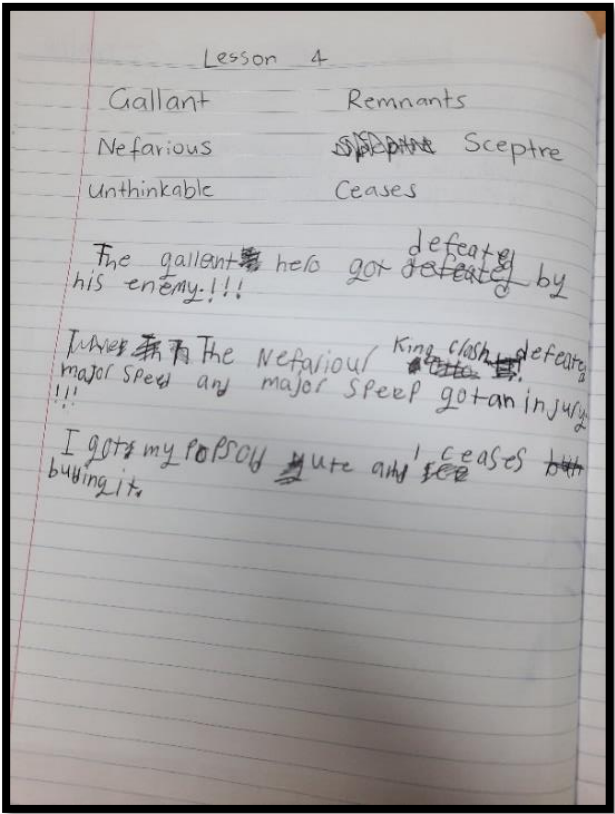 Lesson 4
Gallant Remnants
Nefarious Sceptre
Unthinkable Ceases
The gallant hero got defeated by
his enemy!!!
The Nefariour King clash defeated
major speed and major speep got an injury
!!!
I got my and I ceases
buying it.